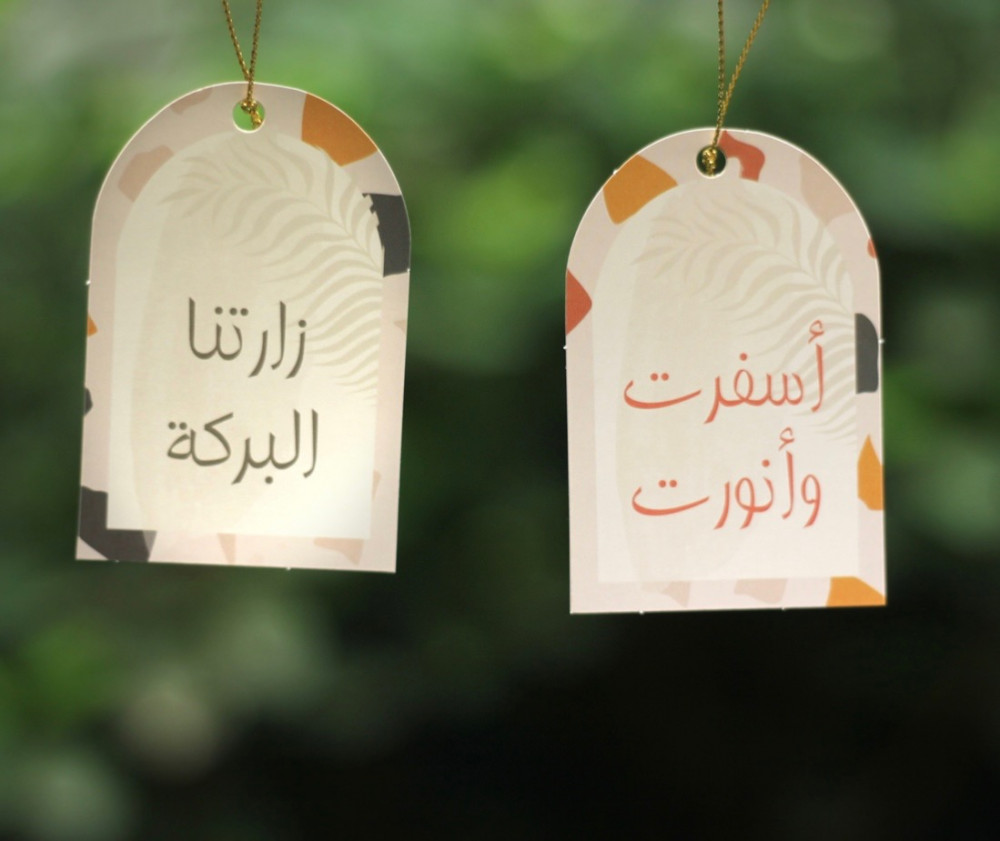 زارتنا
البركة
أسفرت
وأنورت